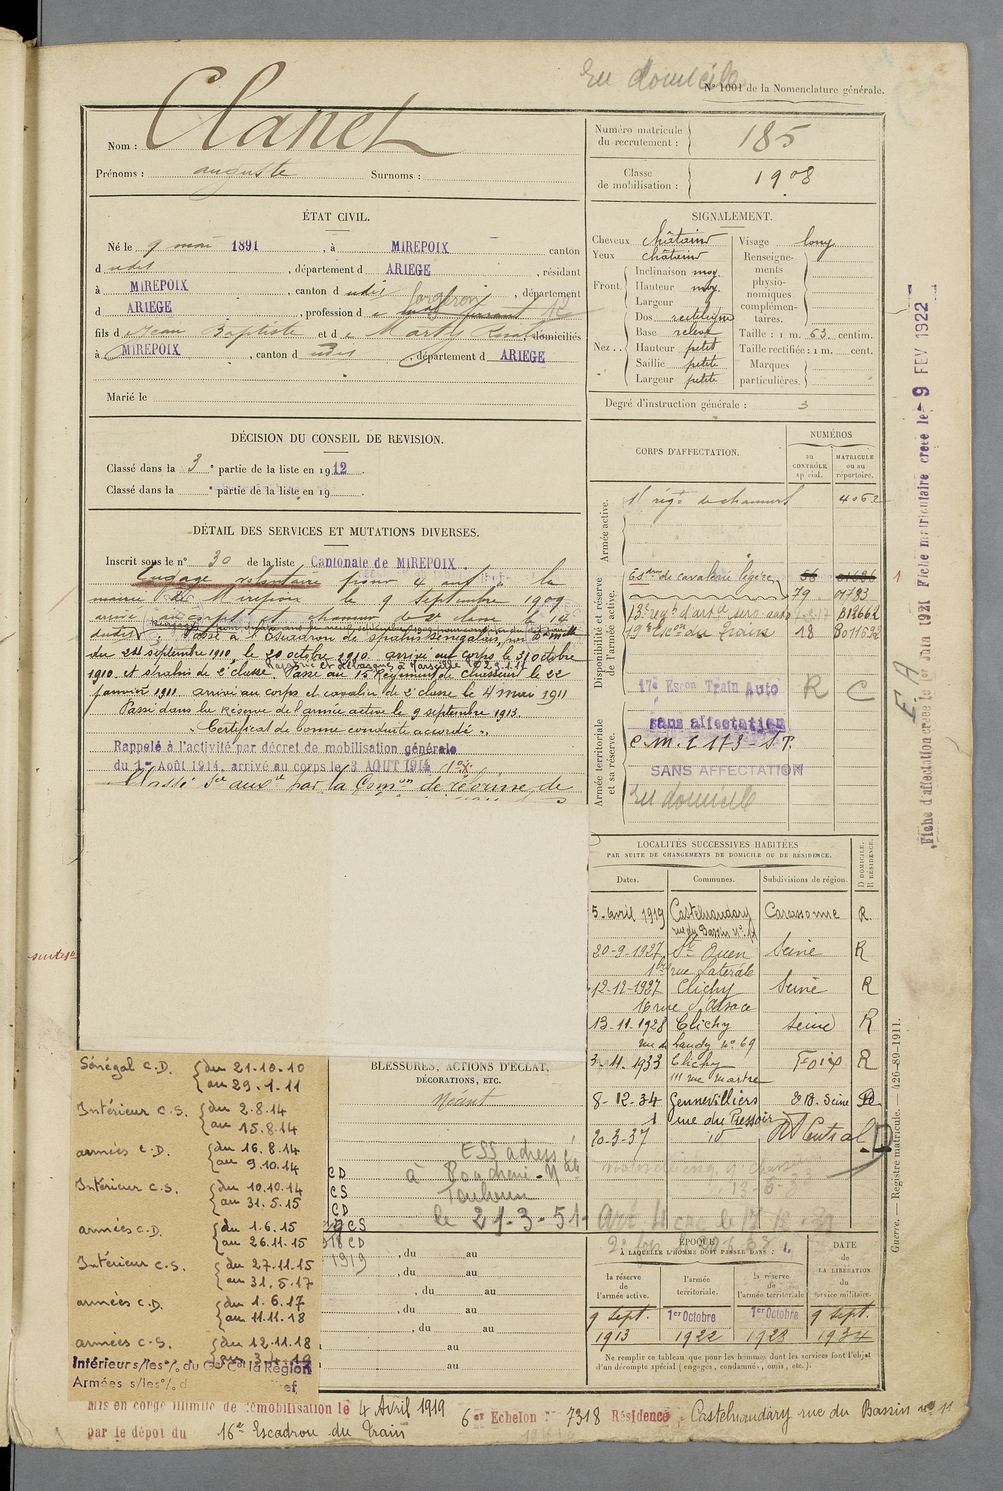 En domicile
N° 1001 de la Nomenclature générale.
Nom : Clanet
Prénoms : auguste Surnoms :
Numéro matricule du recrutement : 185
Classe de mobilisation : 1908
ÉTAT CIVIL.
Né le 9 mai 1891, à MIREPOIX canton
d udit, département d ARIEGE, résidant
à MIREPOIX, canton d udit, département
d ARIEGE, profession d e forgeron
fils d e Jean Baptiste et d e Marty, domiciliés
à MIREPOIX, canton d udit, département d ARIEGE
Marié le
SIGNALEMENT.
Cheveux châtains
Yeux châtains
Front. Inclinaison moy.
Hauteur moy.
Largeur
Nez .. Dos rectiligne
Base relevé
Hauteur petit
Saillie petite
Largeur petite
Visage long
Renseignements physionomiques complémentaires.
Taille : 1 m. 63 centim.
Taille rectifiée : 1 m. cent.
Marques particulières.
Degré d'instruction générale : 3
DÉCISION DU CONSEIL DE REVISION.
Classé dans la 3 e partie de la liste en 1912.
Classé dans la e partie de la liste en 19
DÉTAIL DES SERVICES ET MUTATIONS DIVERSES.
Inscrit sous le n° 30 de la liste Cantonale de MIREPOIX.
Engagé volontaire pour 4 ans à la
mairie de Mirepoix le 9 Septembre 1909
arrivé au corps et chasseur de 2e classe le 14
dudit. Passé à l'Escadron de spahis sénégalais,
du 21 septembre 1910, le 20 octobre 1910. arrivé au corps le 31 octobre
1910 et spahis de 2e classe. Passé au 15 Régiment de Chasseurs le 22
janvier 1911. arrivé au corps et cavalier de 2e classe le 4 mars 1911
Passé dans la Réserve de l'armée active le 9 septembre 1913.
"Certificat de bonne conduite accordé".
Rappelé à l'activité par décret de mobilisation générale
du 1er Août 1914, arrivé au corps le 3 AOUT 1914
Classé Sce auxre par la Comon de réforme de
CORPS D'AFFECTATION.
NUMÉROS
au CONTRÔLE spécial.
MATRICULE ou au répertoire.
Armée active.
régt de chasseurs 4062
Disponibilité et réserve de l'armée active.
Esdon de cavalerie légère 56 01686
79 01783
13e régt d'artie serv. auto B18662
19e Escon du train 18
17e Escon Train Auto R C
Armée territoriale et sa réserve.
sans affectation
C.M.I 173 - S.T.
SANS AFFECTATION
En domicile
LOCALITÉS SUCCESSIVES HABITÉES
PAR SUITE DE CHANGEMENTS DE DOMICILE OU DE RÉSIDENCE.
Dates. Communes. Subdivisions de région. D domicile. R résidence.
5 avril 1919 Castelnaudary Carcassonne R.
rue du Bassin n° 11
20-9-1927 St Ouen Seine R
rue Latérale
12-12-1927 Clichy Seine R
16 rue d'Alsace
13-11-1928 Clichy Seine R
rue de Landy n° 69
3-11-1933 Clichy Foix R
111 rue Martre
8-12-34 Gennevilliers Seine
1 rue du Pressoir
20-3-37 id Rt Central D
BLESSURES, ACTIONS D'ÉCLAT,
DÉCORATIONS, ETC.
Néant
ESS adressé
à
Toulouse
le 21-3-51
Sénégal C.D. du 21-10-10
au 29.1.11
Intérieur C.S. du 2.8.14
au 15.8.14
armées C.D. du 16.8.14
au 9.10.14
Intérieur C.S. du 10.10.14
au 31.5.15
armées C.D. du 1.6.15
au 26.11.15
Intérieur C.S. du 27.11.15
au 31.5.17
armées C.D. du 1.6.17
au 11.11.18
armées C.S. du 12.11.18
Intérieur s/les % du Gal Cdt la Région
Armées s/les %
CD
CS
CD
CS
CD
1919
, du au
, du au
, du au
, du au
, du au
au
au
ÉPOQUE
À LAQUELLE L'HOMME DOIT PASSER DANS :
DATE de LA LIBÉRATION du service militaire.
la réserve de l'armée active.
l'armée territoriale.
la réserve de l'armée territoriale
9 sept. 1913
1er Octobre 1922
1er Octobre 1928
9 sept. 1934
Ne remplir ce tableau que pour les hommes dont les services font l'objet d'un décompte spécial (engagés, condamnés, omis, etc.).
Mis en congé illimité de démobilisation le 4 Avril 1919 6e Echelon N° 7318 Résidence Castelnaudary rue du Bassin n° 11
par le dépôt du 16e Escadron du Train
Guerre. — Registre matricule. — 426-89-1911.
Fiche d'affectation créée le 1er Juin 1921 Fiche matriculaire créée le 9 FEV 1922
E A